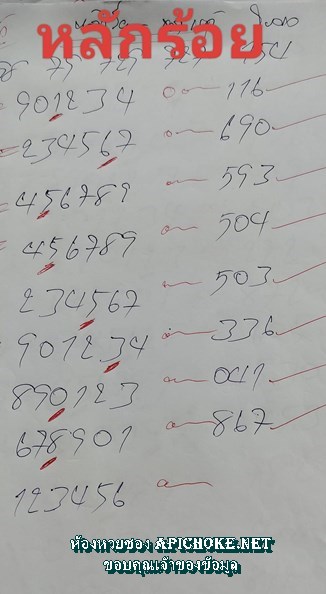 หลักร้อย
901234 116
234567 690
456789 593
456789 504
234567 503
901234 336
890123 041
678901 867
123456
ห้องหวยซอง APICHOKE.NET
ขอบคุณเจ้าของข้อมูล